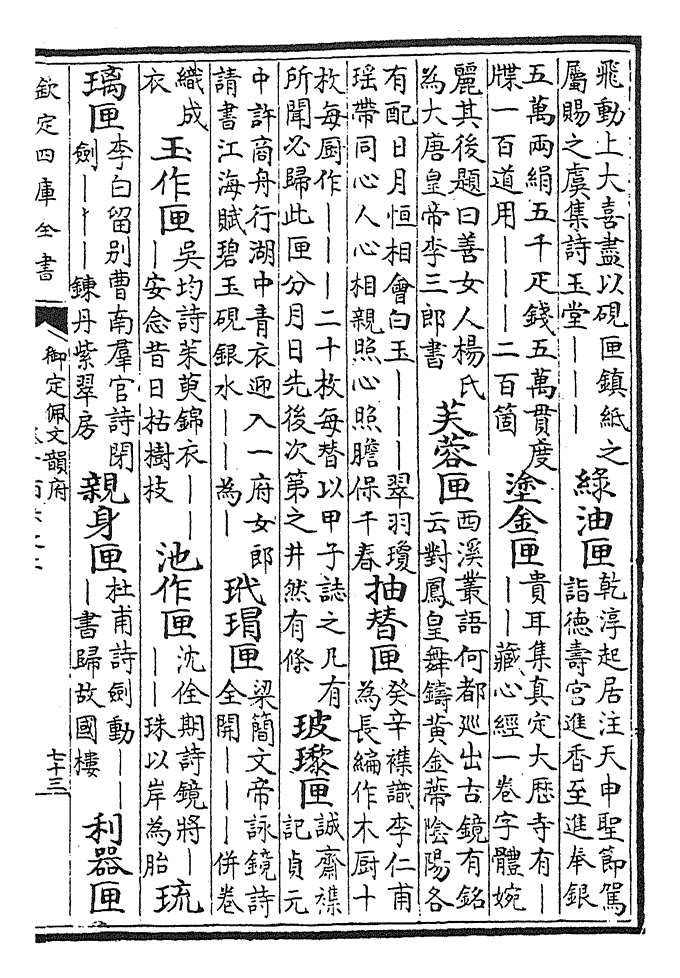 飛動上大喜盡以硯匣鎮紙之
屬賜之虞集詩玉堂———
綠油匣
乾淳起居注天申聖節駕
詣德壽宮進香至進奉銀
五萬兩絹五千疋錢五萬貫度
牒一百道用———二百箇
塗金匣
貴耳集真定大歷寺有—
——藏心經一卷字體婉
麗其後題曰善女人楊氏
為大唐皇帝李三郎書
芙蓉匣
西溪叢語何都廵出古鏡有銘
云對鳳皇舞鑄黃金蔕隂陽各
有配日月恒相會白玉———翠羽瓊
瑶帶同心人心相親照心照膽保千春
抽替匣
癸辛襍識李仁甫
為長編作木厨十
枚每厨作———二十枚每替以甲子誌之凡有
所聞必歸此匣分月日先後次第之井然有條
玻瓈匣
誠齋襍
記貞元
中許商舟行湖中青衣迎入一府女郎
請書江海賦碧玉硯銀水——為—
玳瑁匣
梁簡文帝詠鏡詩
全開———併卷
織成
衣
玉作匣
吳均詩茱萸錦衣——
—安念昔日枯樹枝
池作匣
沈佺期詩鏡將—
——珠以岸為胎
琉
璃匣
李白留別曹南羣官詩閉
劍———錬丹紫翠房
親身匣
杜甫詩劍動——
—書歸故國樓
利器匣
欽定四庫全書
御定佩文韻府
七十三